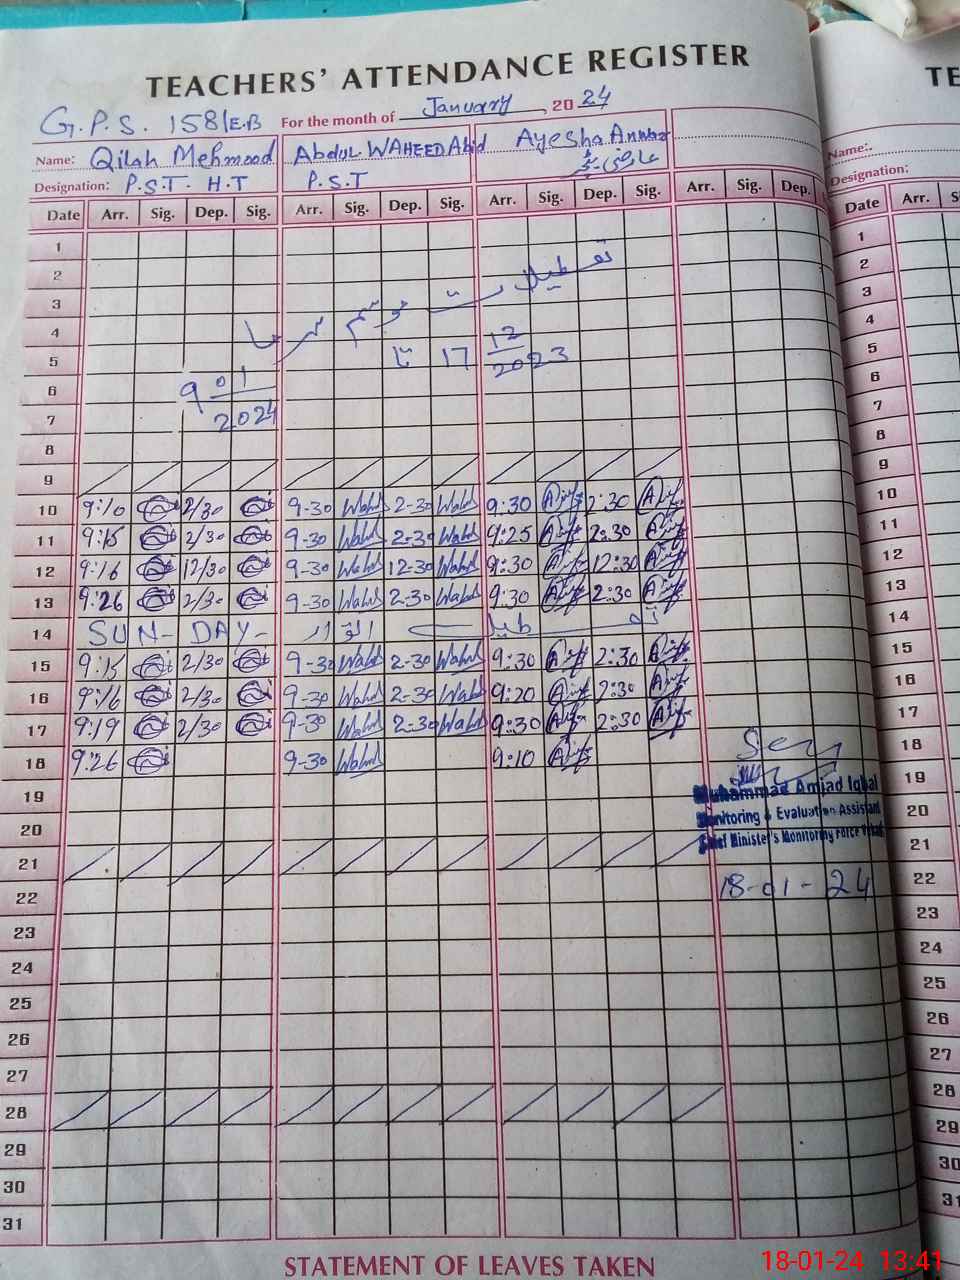 TEACHERS' ATTENDANCE REGISTER
TE
G.P.S. 158/E.B For the month of January, 2024
Name: Qilah Mehmood Abdul WAHEED Abid Ayesha Anwar
Name:
Designation: P.S.T. H.T P.S.T
Designation:
Date Arr. Sig. Dep. Sig. Arr. Sig. Dep. Sig. Arr. Sig. Dep. Sig. Arr. Sig. Dep. Date Arr. S
1 1
2 تعطیلات 2
3 موسم سرما 3
4 12 4
5 تا 17 2023 5
6 9 01 6
7 2024 7
8 8
9 9
10 9:10 2/30 9-30 Wahd 2-30 Wahd 9:30 2:30 10
11 9:15 2/30 9-30 Wahd 2-30 Wahd 9:25 2:30 11
12 9:16 12/30 9-30 Wahd 12-30 Wahd 9:30 12:30 12
13 9:26 2/30 9-30 Wahd 2-30 Wahd 9:30 2:30 13
14 SUN-DAY- اتوار تعطیل 14
15 9:15 2/30 9-30 Wahd 2-30 Wahd 9:30 2:30 15
16 9:16 2/30 9-30 Wahd 2-30 Wahd 9:20 2:30 16
17 9:19 2/30 9-30 Wahd 2-30 Wahd 9:30 2:30 17
18 9:26 9-30 Wahd 9:10 Seen 18
19 Muhammad Amjad Iqbal 19
20 Monitoring & Evaluation Assistant 20
21 Chief Minister's Monitoring Force 21
22 18-01-24 22
23 23
24 24
25 25
26 26
27 27
28 28
29 29
30 30
31 31
STATEMENT OF LEAVES TAKEN
18-01-24 13:41